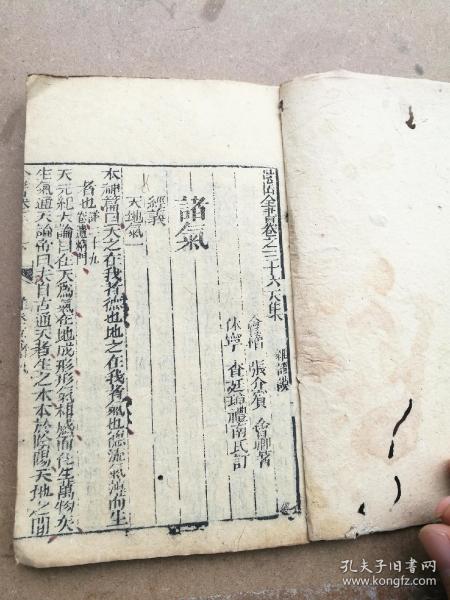 全書卷之三十六天集 雜證謨
會稽 張介賓 會卿著
休寧 查廷璋禮南氏訂
諸氣
經義
天地氣一
本神篇曰天之在我者德也地之在我者氣也德流氣薄而生
者也
天元紀大論曰在天為氣在地成形形氣相感而化生萬物矣
生氣通天論帝曰夫自古通天者生之本本於陰陽天地之間
孔夫子旧书网
www.kongfz.com